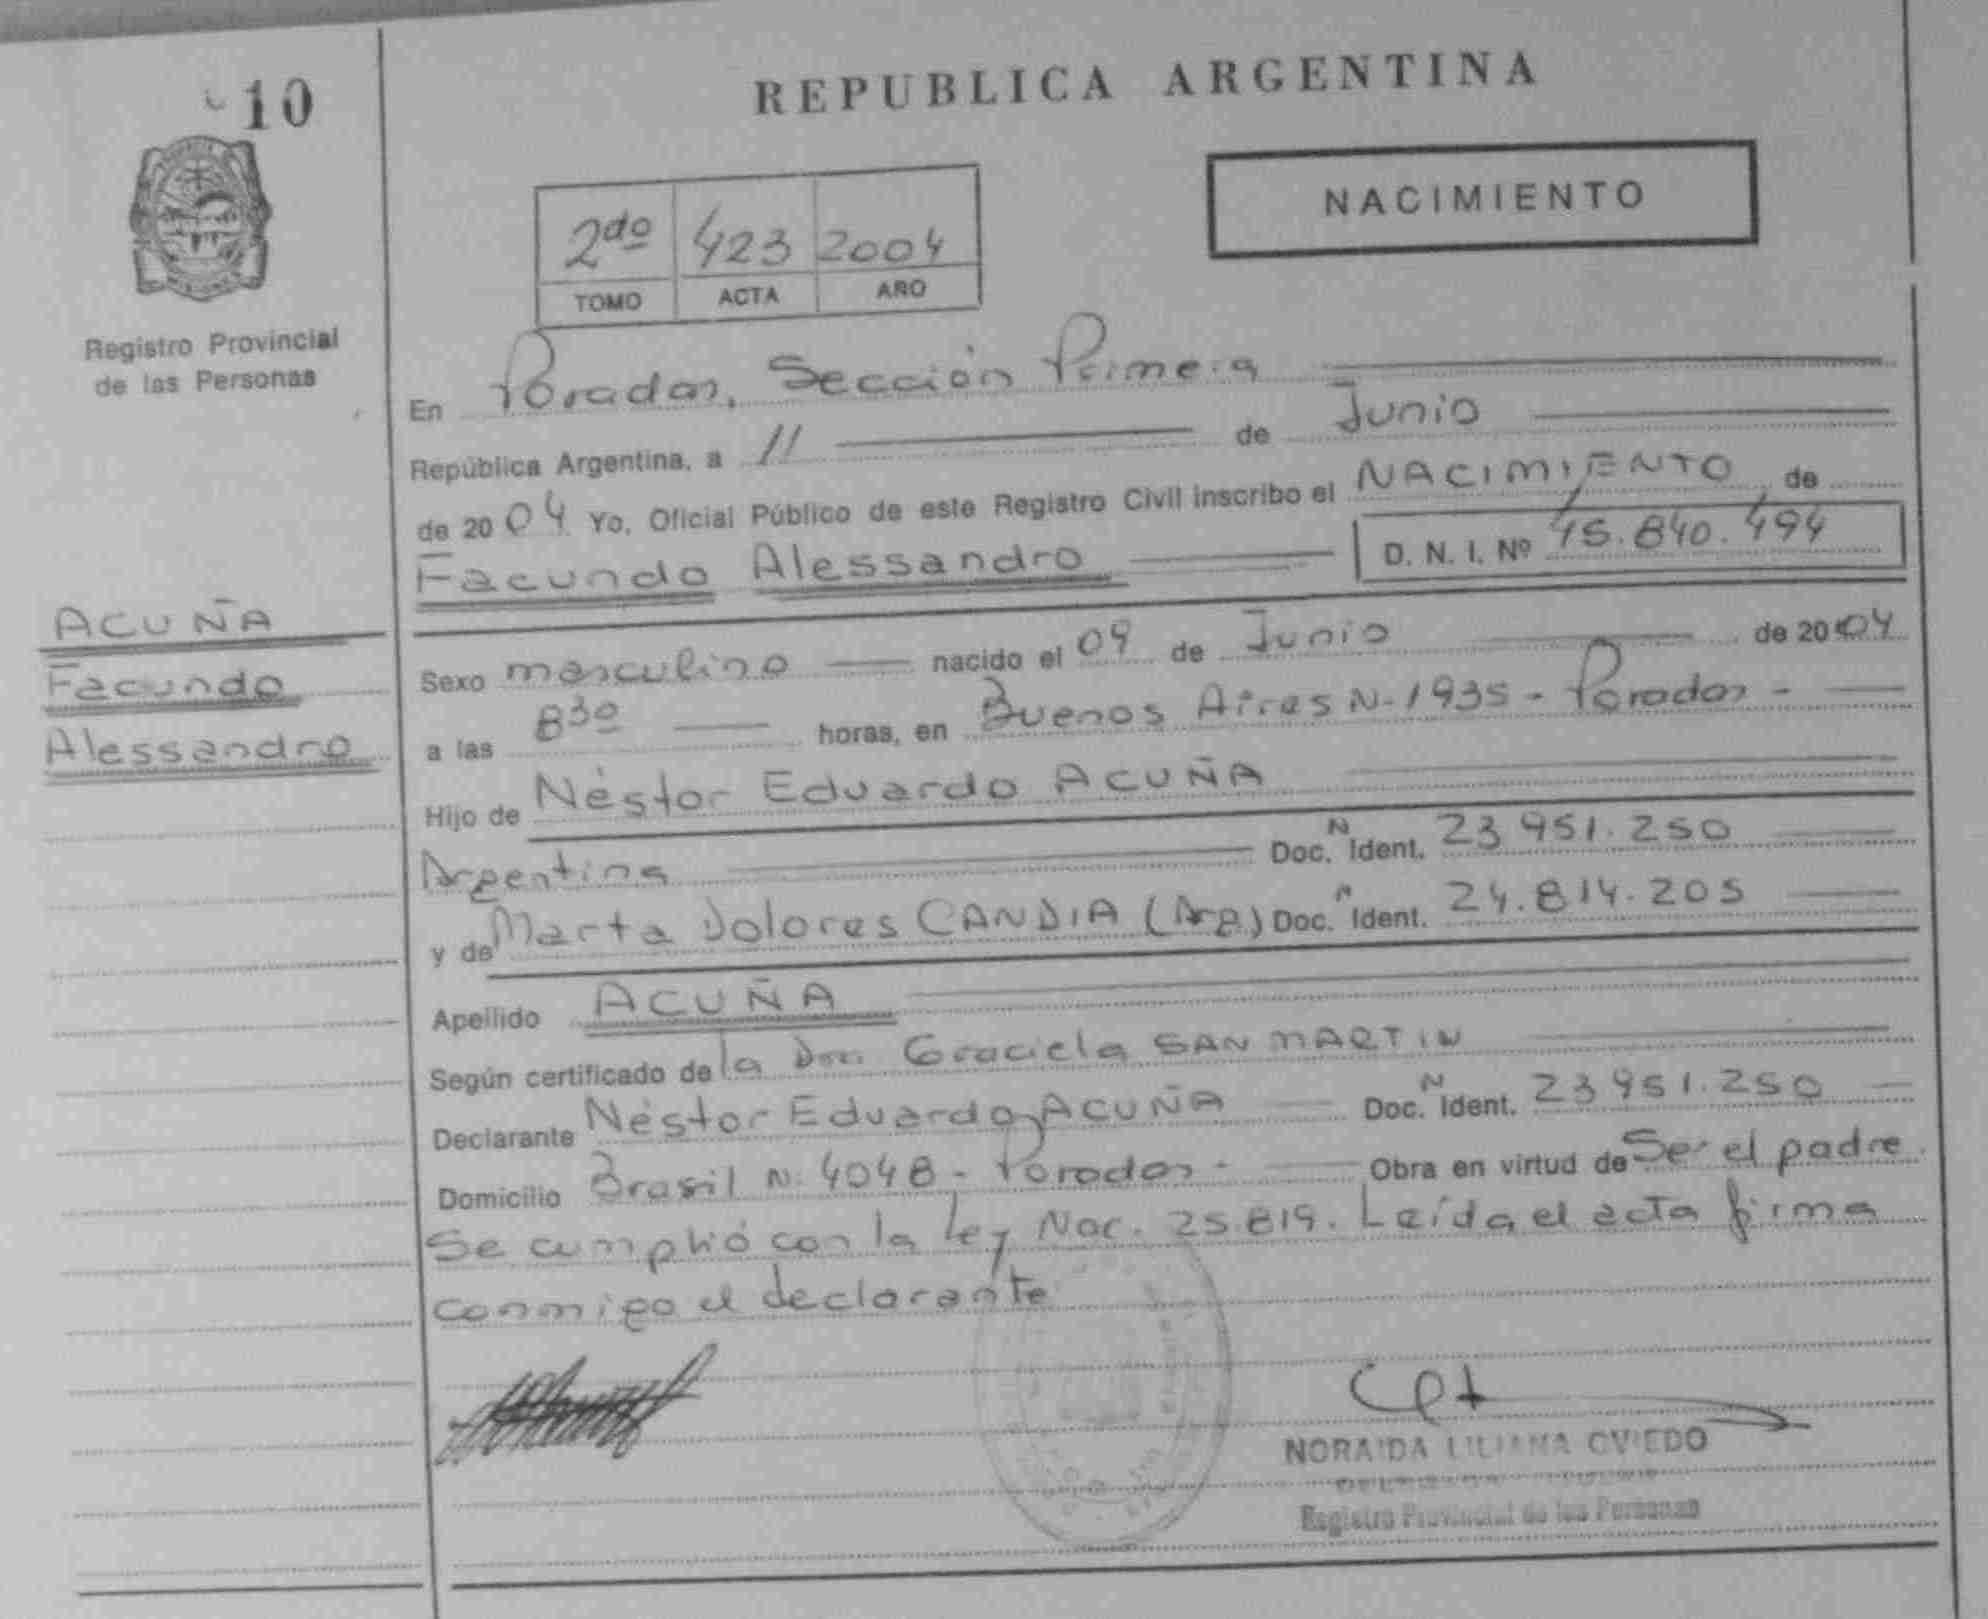 10
REPUBLICA ARGENTINA
NACIMIENTO
2do 423 2004
TOMO ACTA AÑO
Registro Provincial
de las Personas
En Posadas, Sección Primera
República Argentina, a 11 de Junio
de 2004 Yo, Oficial Público de este Registro Civil inscribo el NACIMIENTO de
Facundo Alessandro D. N. I. Nº 45.840.494
ACUÑA
Facundo
Alessandro
Sexo masculino nacido el 09 de Junio de 2004
a las 830 horas, en Buenos Aires N-1935 - Posadas -
Hijo de Néstor Eduardo ACUÑA
Argentina Doc. N Ident. 23 951.250
y de Marta Dolores CANDIA (Arg) Doc. N Ident. 24.814.205
Apellido ACUÑA
Según certificado de la Dra. Graciela SAN MARTIN
Declarante Néstor Eduardo ACUÑA Doc. N Ident. 23 951.250
Domicilio Brasil N. 4048 - Posadas - Obra en virtud de Ser el padre.
Se cumplió con la Ley Nac. 25.819. Leída el acta firma
conmigo el declarante
NORAIDA LILIANA OVIEDO
Registro Provincial de las Personas